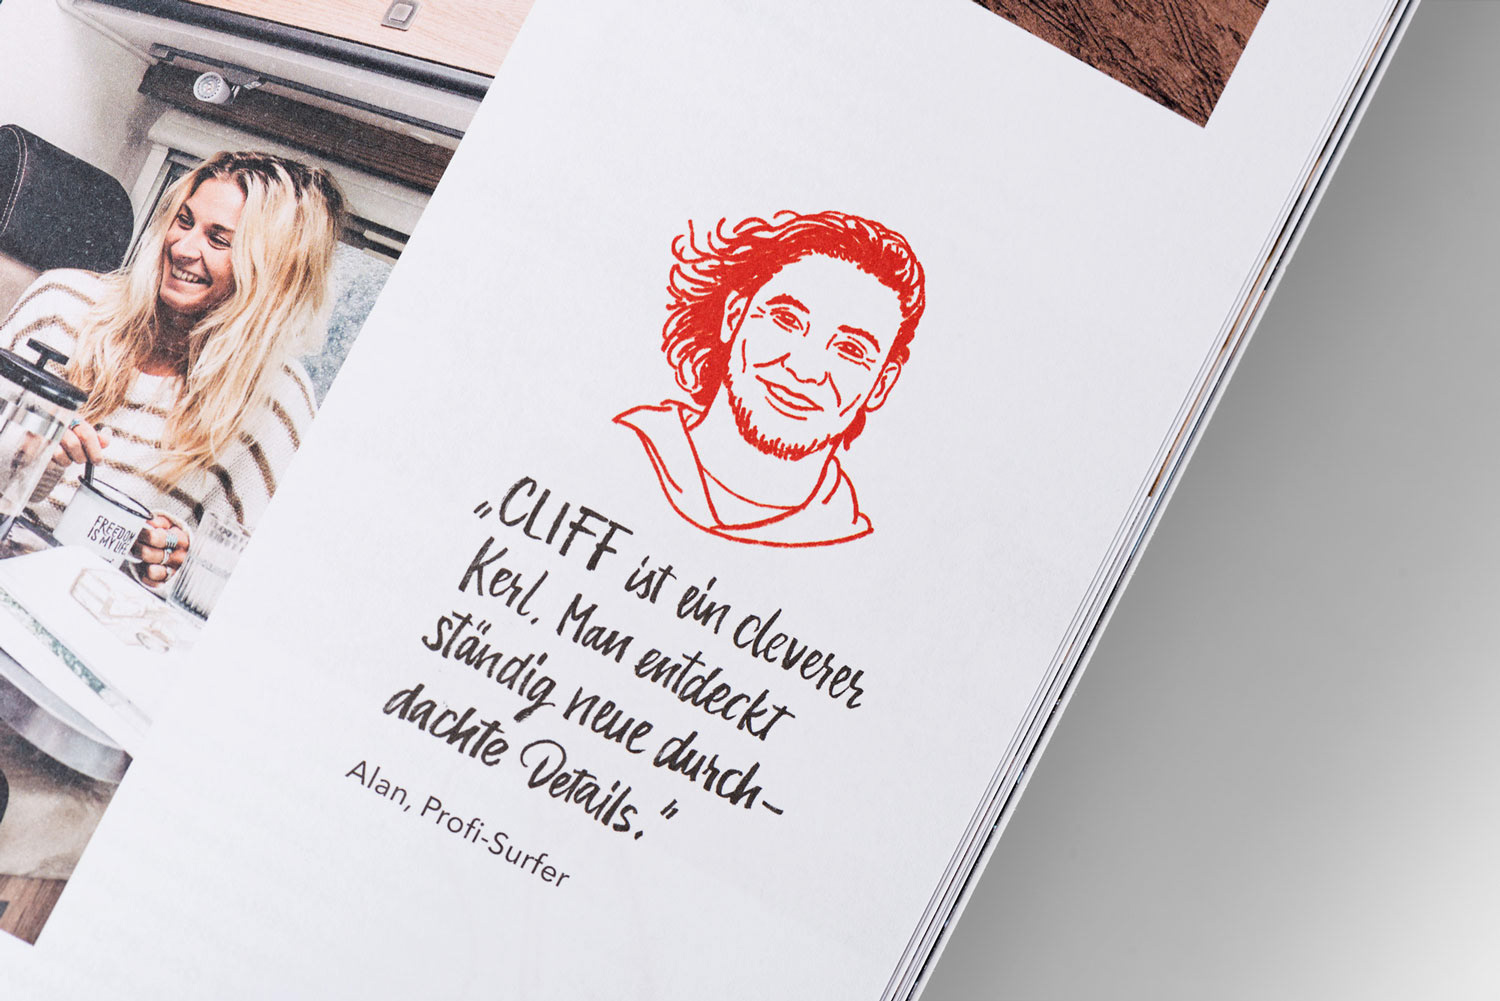 FREEDOM
IS MY LIFE
„CLIFF ist ein cleverer
Kerl. Man entdeckt
ständig neue durch-
dachte Details.“
Alan, Profi-Surfer